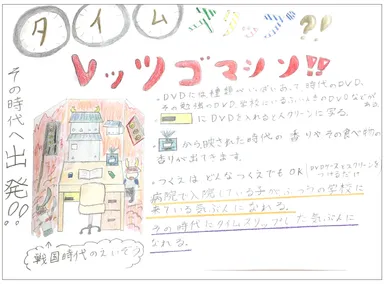 タイムスリップ?!
レッツゴマシン!!
その時代へ出発!!
・DVDには種類がいっぱいあって、時代のDVD、
その勉強のDVD、学校にいるふんいきのDVDなどがある。
にDVDを入れるとスクリーンに写る。
から映された時代の香りやその食べ物の
香りが出てきます。
・つくえはどんなつくえでもOK
DVDケースとスクリーンを
つけるだけ
病院で入院している子がふつうの学校に
来ている気ぶんになれる。
その時代にタイムスリップした気ぶんに
なれる。
戦国時代のえいぞう